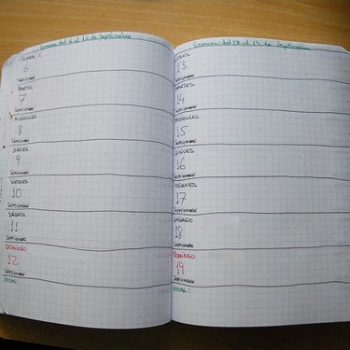 Semana del 6 al 12 de Septiembre
LUNES
6
Septiembre
MARTES
7
Septiembre
MIÉRCOLES
8
Septiembre
JUEVES
9
Septiembre
VIERNES
10
Septiembre
SÁBADO
11
Septiembre
DOMINGO
12
Septiembre
Semana del 13 al 19 de Septiembre
LUNES
13
Septiembre
MARTES
14
Septiembre
MIÉRCOLES
15
Septiembre
JUEVES
16
Septiembre
VIERNES
17
Septiembre
SÁBADO
18
Septiembre
DOMINGO
19
Septiembre